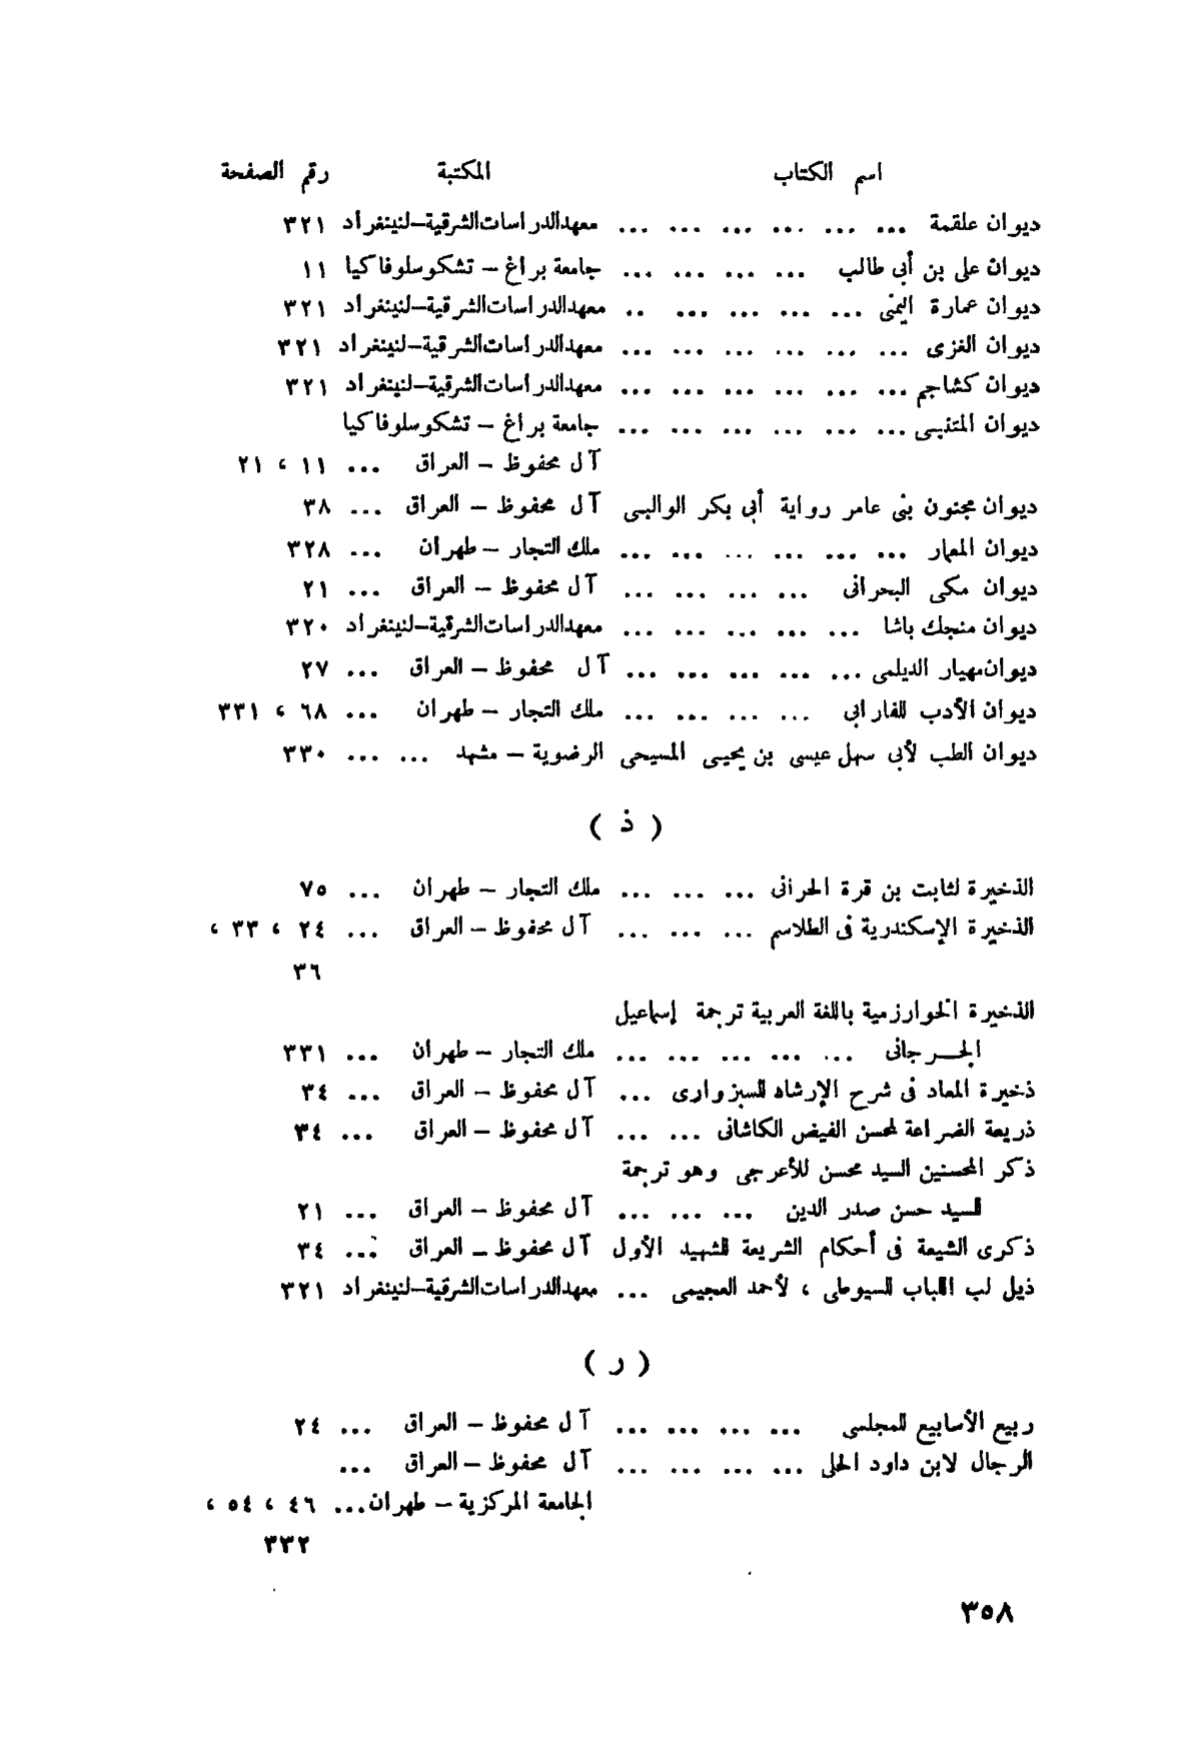 اسم الكتاب المكتبة رقم الصفحة
ديوان علقمة ... ... ... ... ... ... معهد الدراسات الشرقية – لنينغراد ٣٢١
ديوان على بن أبى طالب ... ... ... ... جامعة براغ – تشكوسلوفاكيا ١١
ديوان عمارة اليمنى ... ... ... ... .. معهد الدراسات الشرقية – لنينغراد ٣٢١
ديوان الغزى ... ... ... ... ... ... معهد الدراسات الشرقية – لنينغراد ٣٢١
ديوان كشاجم ... ... ... ... ... ... معهد الدراسات الشرقية – لنينغراد ٣٢١
ديوان المتنبـى ... ... ... ... ... ... جامعة براغ – تشكوسلوفاكيا
آل محفوظ – العراق ... ١١ ، ٢١
ديوان مجنون بنى عامر رواية أبى بكر الوالبـى آل محفوظ – العراق ... ٣٨
ديوان المعمار ... ... ... ... ... ... ملك التجار – طهران ... ٣٢٨
ديوان مكى البحرانى ... ... ... ... آل محفوظ – العراق ... ٢١
ديوان منجك باشا ... ... ... ... ... معهد الدراسات الشرقية – لنينغراد ٣٢٠
ديوان مهيار الديلمى ... ... ... ... ... آل محفوظ – العراق ... ٢٧
ديوان الأدب للفارابى ... ... ... ... ملك التجار – طهران ... ٦٨ ، ٣٣١
ديوان الطب لأبى سهل عيسى بن يحيـى المسيحى الرضوية – مشهد ... ... ٣٣٠
( ذ )
الذخيرة لثابت بن قرة الحرانى ... ... ... ملك التجار – طهران ... ٧٥
الذخيرة الإسكندرية فى الطلاسم ... ... ... آل محفوظ – العراق ... ٢٤ ، ٣٣ ،
٣٦
الذخيرة الخوارزمية باللغة العربية ترجمة إسماعيل
الجـرجانى ... ... ... ... ... ملك التجار – طهران ... ٣٣١
ذخيرة المعاد فى شرح الإرشاد للسبزوارى ... آل محفوظ – العراق ... ٣٤
ذريعة الضراعة لمحسن الفيض الكاشانى ... ... آل محفوظ – العراق ... ٣٤
ذكر المحسنين السيد محسن للأعرجى وهو ترجمة
للسيد حسن صدر الدين ... ... ... آل محفوظ – العراق ... ٢١
ذكرى الشيعة فى أحكام الشريعة للشهيد الأول آل محفوظ – العراق ... ٣٤
ذيل لب اللباب للسيوطى ، لأحمد العجيمى ... معهد الدراسات الشرقية – لنينغراد ٣٢١
( ر )
ربيع الأسابيع للمجلسى ... ... ... ... آل محفوظ – العراق ... ٢٤
الرجال لابن داود الحلى ... ... ... ... آل محفوظ – العراق ...
الجامعة المركزية – طهران ... ٤٦ ، ٥٤ ،
٣٣٢
٣٥٨